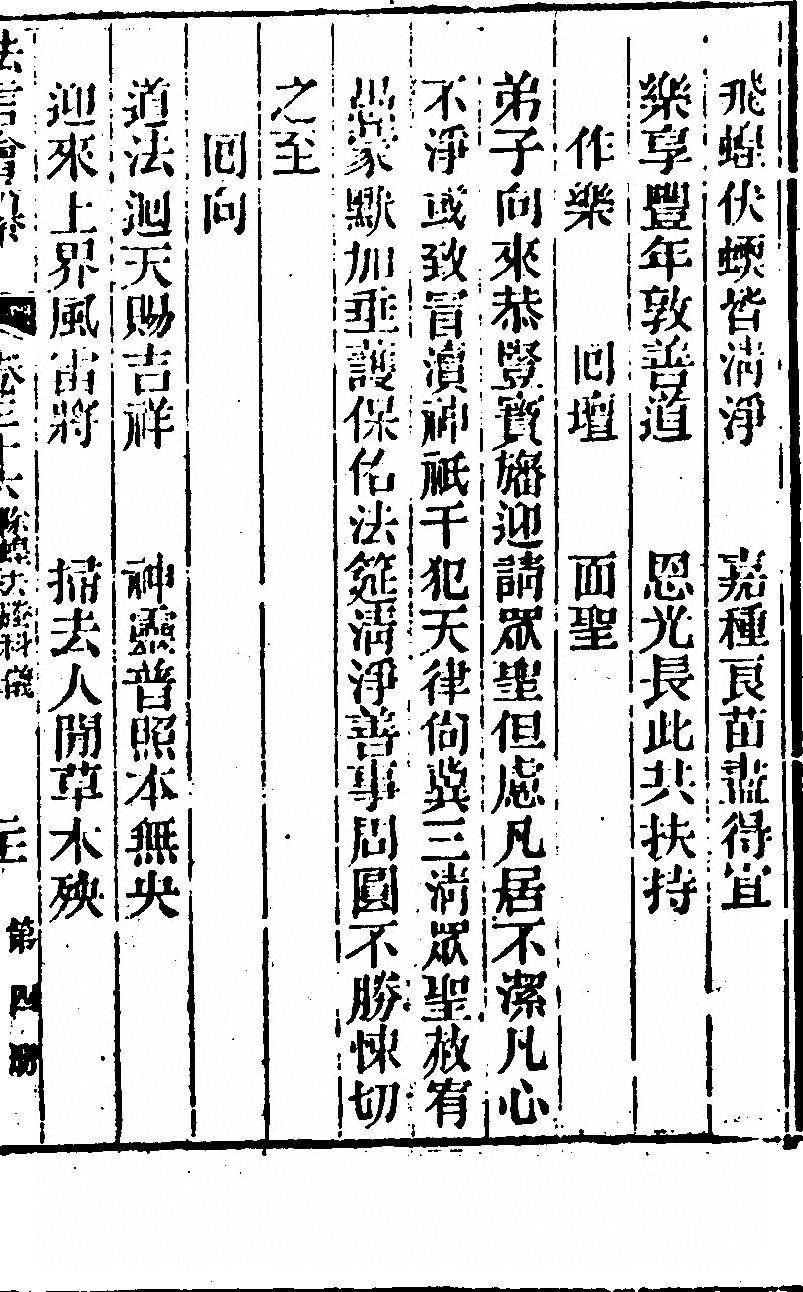 飛蝗伏蝡皆清淨　嘉種良苗盡得宜
樂享豐年敦善道　恩光長此共扶持
作樂　回壇　面聖
弟子向來恭豎寶旛迎請眾聖但慮凡居不潔凡心
不淨或致冒瀆神祇干犯天律尙冀三清眾聖赦宥
愚蒙默加垂護保佑法筵淸淨善事周圓不勝悚切
之至
回向
道法迴天賜吉祥　神靈普照本無央
迎來上界風雷將　掃去人間草木殃
法言會纂　卷三十六　除蝗大醮科儀　第四冊